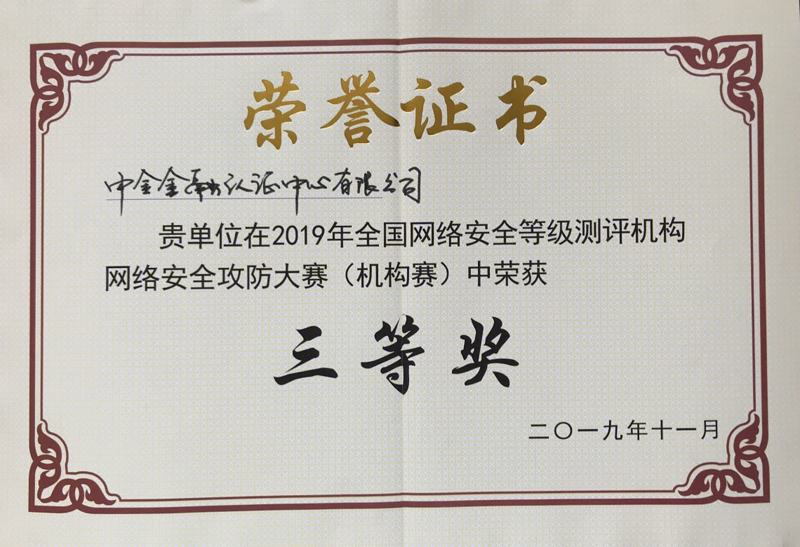 荣誉证书
中金金融认证中心有限公司
贵单位在2019年全国网络安全等级测评机构
网络安全攻防大赛（机构赛）中荣获
三等奖
二〇一九年十一月